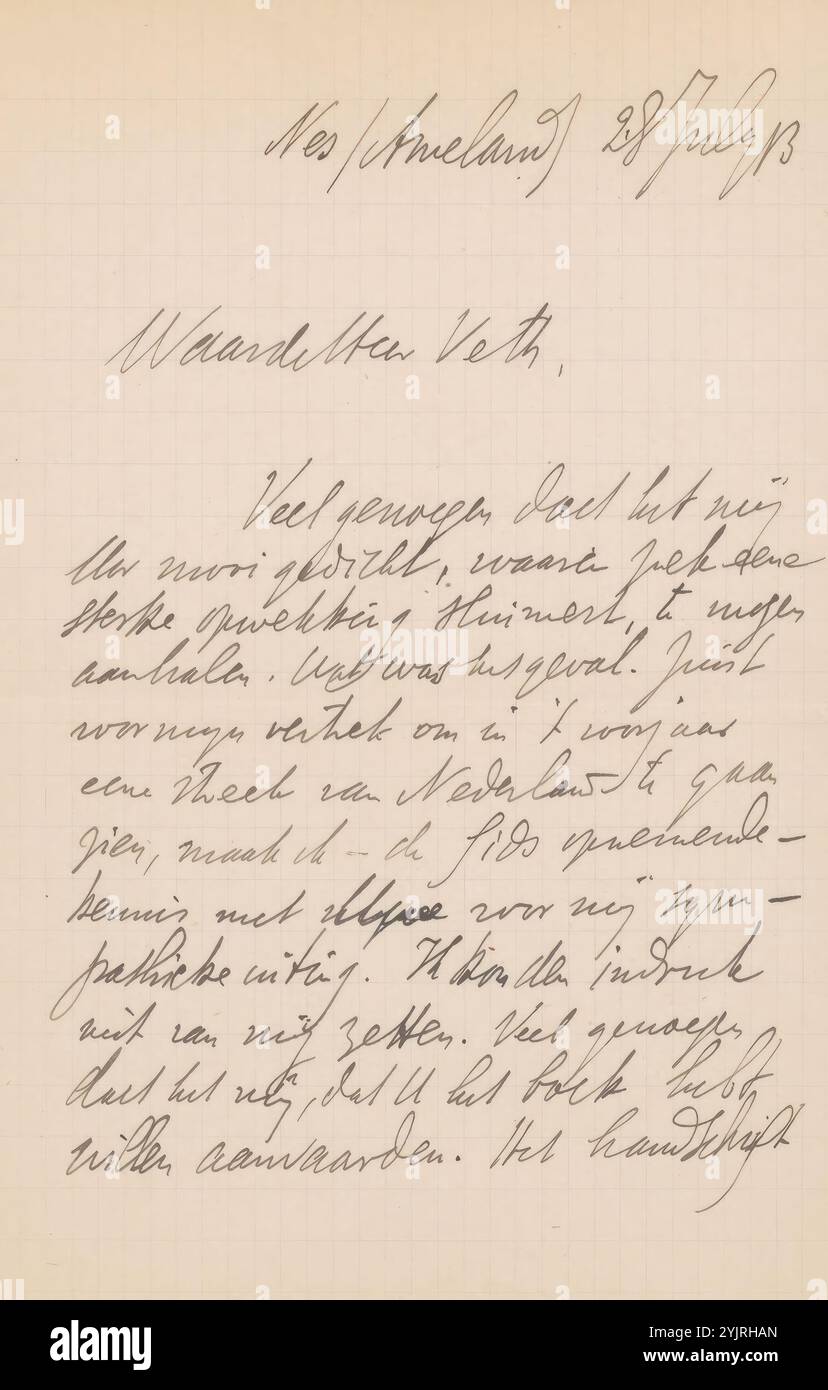 Nes (Ameland) 28 July 13
Waarde Heer Veth,
Veel genoegen doet het mij
Uw mooi gedicht, waarin zulk eene
sterke opwekking sluimert, te mogen
aanhalen. Wat was het geval. Juist
voor mijn vertrek om in 't voorjaar
eene streek van Nederland te gaan
zien, maak ik – de Gids opnemende –
kennis met voor mij sym-
pathieke uiting. Ik kon den indruk
niet van mij zetten. Veel genoegen
doet het mij, dat U het boek hebt
willen aanvaarden. Het handschrift
alamy
Image ID: 2YJRHAN
www.alamy.com